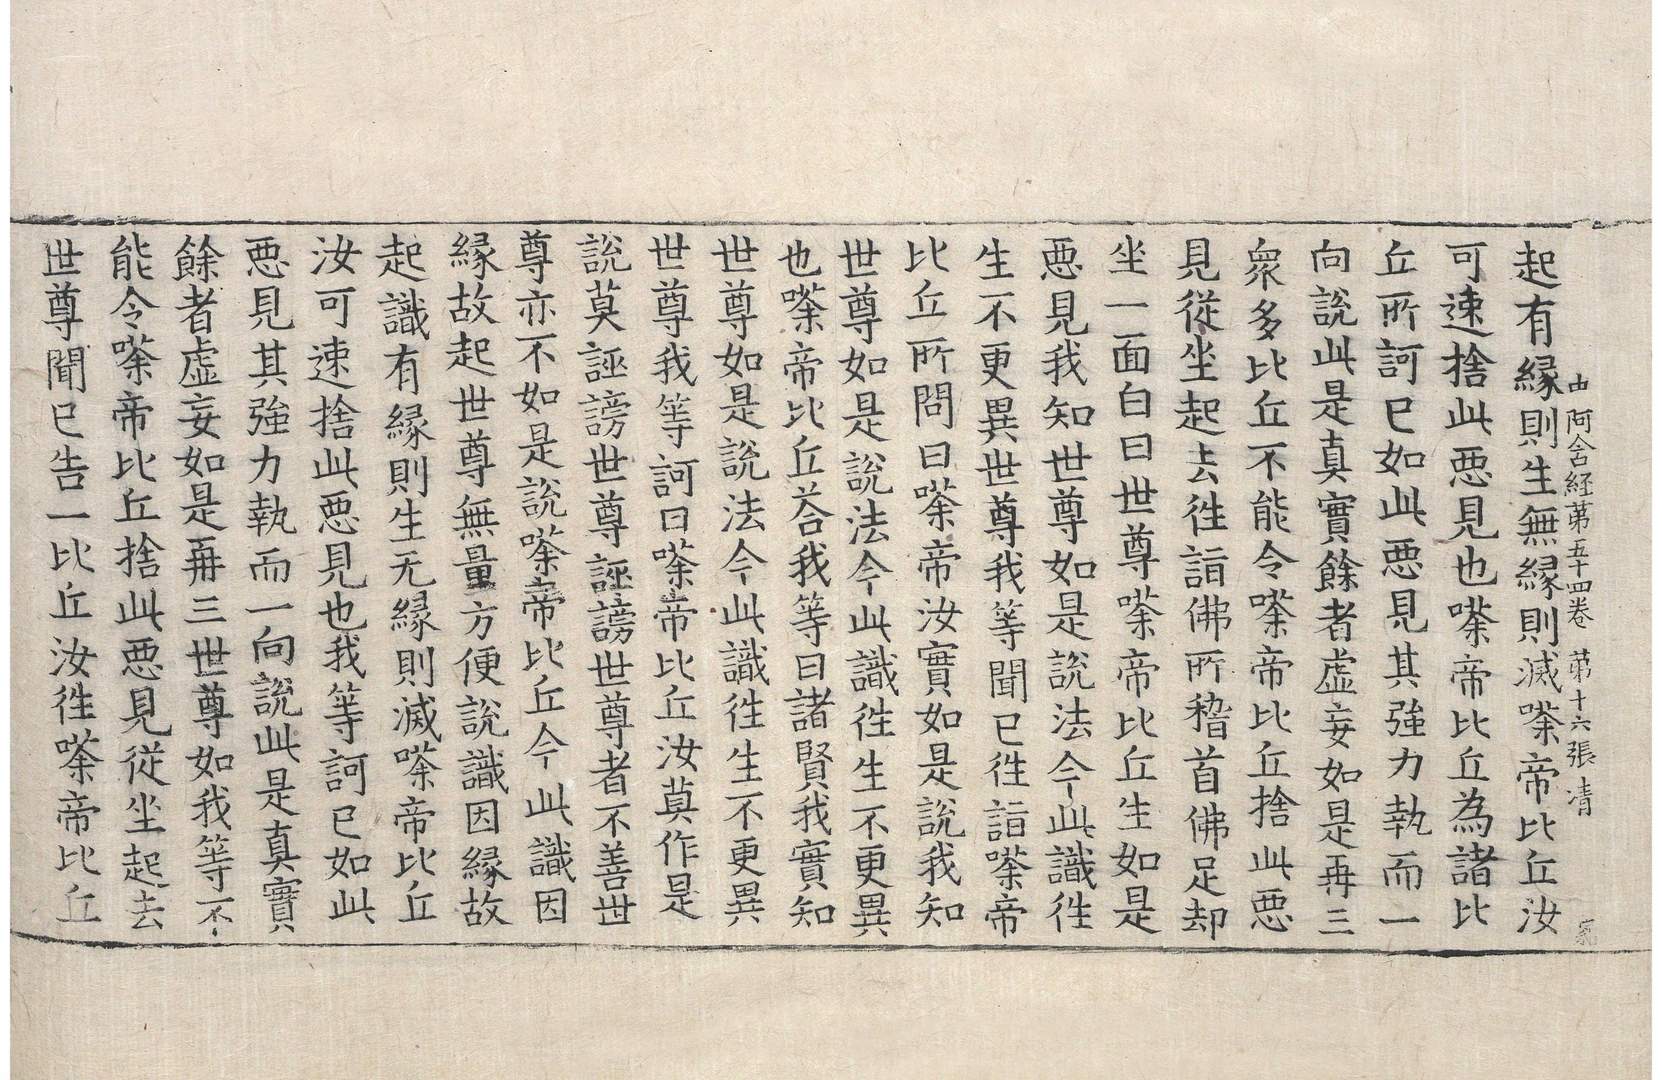 由阿含経苐五十四卷 苐十六張 清
起有縁則生無縁則滅嗏帝比丘汝
可速捨此惡見也嗏帝比丘為諸比
丘所訶已如此惡見其強力執而一
向說此是真實餘者虛妄如是再三
衆多比丘不能令嗏帝比丘捨此惡
見從坐起去徃詣佛所稽首佛足却
坐一面白曰世尊嗏帝比丘生如是
惡見我知世尊如是說法今此識徃
生不更異世尊我等聞已徃詣嗏帝
比丘所問曰嗏帝汝實如是說我知
世尊如是說法今此識徃生不更異
也嗏帝比丘荅我等曰諸賢我實知
世尊如是說法今此識徃生不更異
世尊我等訶曰嗏帝比丘汝莫作是
說莫誣謗世尊誣謗世尊者不善世
尊亦不如是說嗏帝比丘今此識因
縁故起世尊無量方便說識因縁故
起識有縁則生无縁則滅嗏帝比丘
汝可速捨此惡見也我等訶已如此
惡見其強力執而一向說此是真實
餘者虛妄如是再三世尊如我等不
能令嗏帝比丘捨此惡見從坐起去
世尊聞已告一比丘汝徃嗏帝比丘